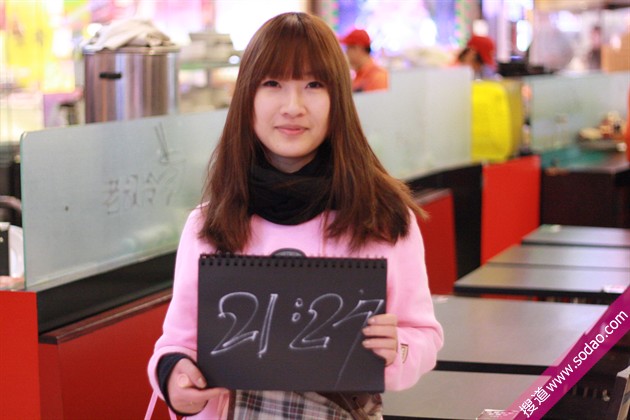 21:27
搜道www.sodao.com